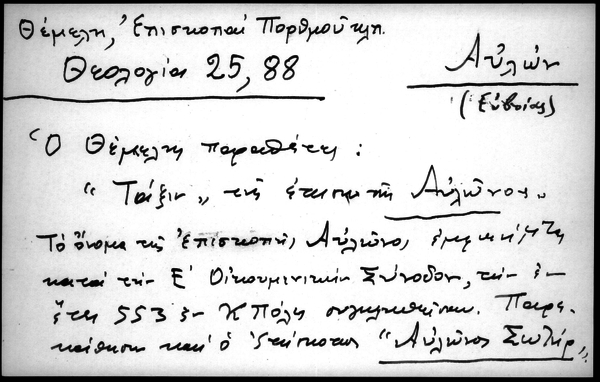 Θέμελη, Ἐπισκοπαὶ Πορθμοῦ κλπ.
Θεολογία 25, 88
Αὐλών
(Εὐβοίας)
Ὁ Θέμελης παραθέτει:
"Τάξιν" τῆς ἐπισκοπῆς Αὐλῶνος.
Τὸ ὄνομα τῆς Ἐπισκοπῆς Αὐλῶνος ἐμφανίζεται
κατὰ τὴν Ε' Οἰκουμενικὴν Σύνοδον, τὴν ἐν
ἔτει 553 ἐν ΚΠόλει συγκληθεῖσαν. Παρε-
κάθησεν καὶ ὁ Ἐπίσκοπος "Αὐλῶνος Σωτήρ".